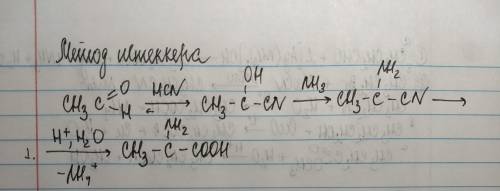 Метод штеккера
CH₃C(=O)H ⇄[HCN] CH₃-C(OH)-CN →[NH₃] CH₃-C(NH₂)-CN →
1. →[H⁺, H₂O / -NH₄⁺] CH₃-C(NH₂)-COOH